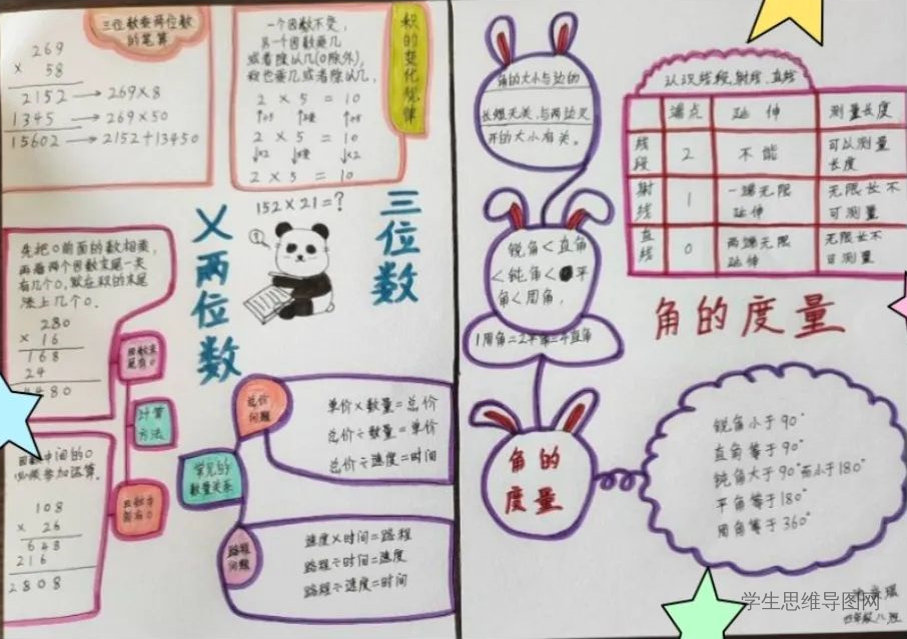 三位数乘两位数
的笔算
269
× 58
2152 → 269×8
1345 → 269×50
15602 → 2152+13450
积的变化规律
一个因数不变,
另一个因数乘几
或者除以几(0除外),
积也乘几或者除以几,
2 × 5 = 10
2 × 5 = 10
2 × 5 = 10
152×21=?
三位数
乂两位数
先把0前面的数相乘,
再看两个因数末尾一共
有几个0,就在积的末尾
添上几个0.
280
× 16
168
24
480
因数末
尾有0
计算
方法
因数中
间有0
因数中间的0
必须参加运算.
108
× 26
648
216
2808
常见的
数量关系
总价
问题
单价×数量=总价
总价÷数量=单价
总价÷速度=时间
路程
问题
速度×时间=路程
路程÷时间=速度
路程÷速度=时间
角的大小与边的
长短无关,与两边叉
开的大小有关。
锐角<直角
<钝角<平
角<周角,
1周角=2平角=4直角
角的
度量
认识线段,射线,直线
端点 延伸 测量长度
线段 2 不能 可以测量长度
射线 1 一端无限延伸 无限长不可测量
直线 0 两端无限延伸 无限长不可测量
角的度量
锐角小于90°
直角等于90°
钝角大于90°而小于180°
平角等于180°
周角等于360°
四年级八班
学生思维导图网